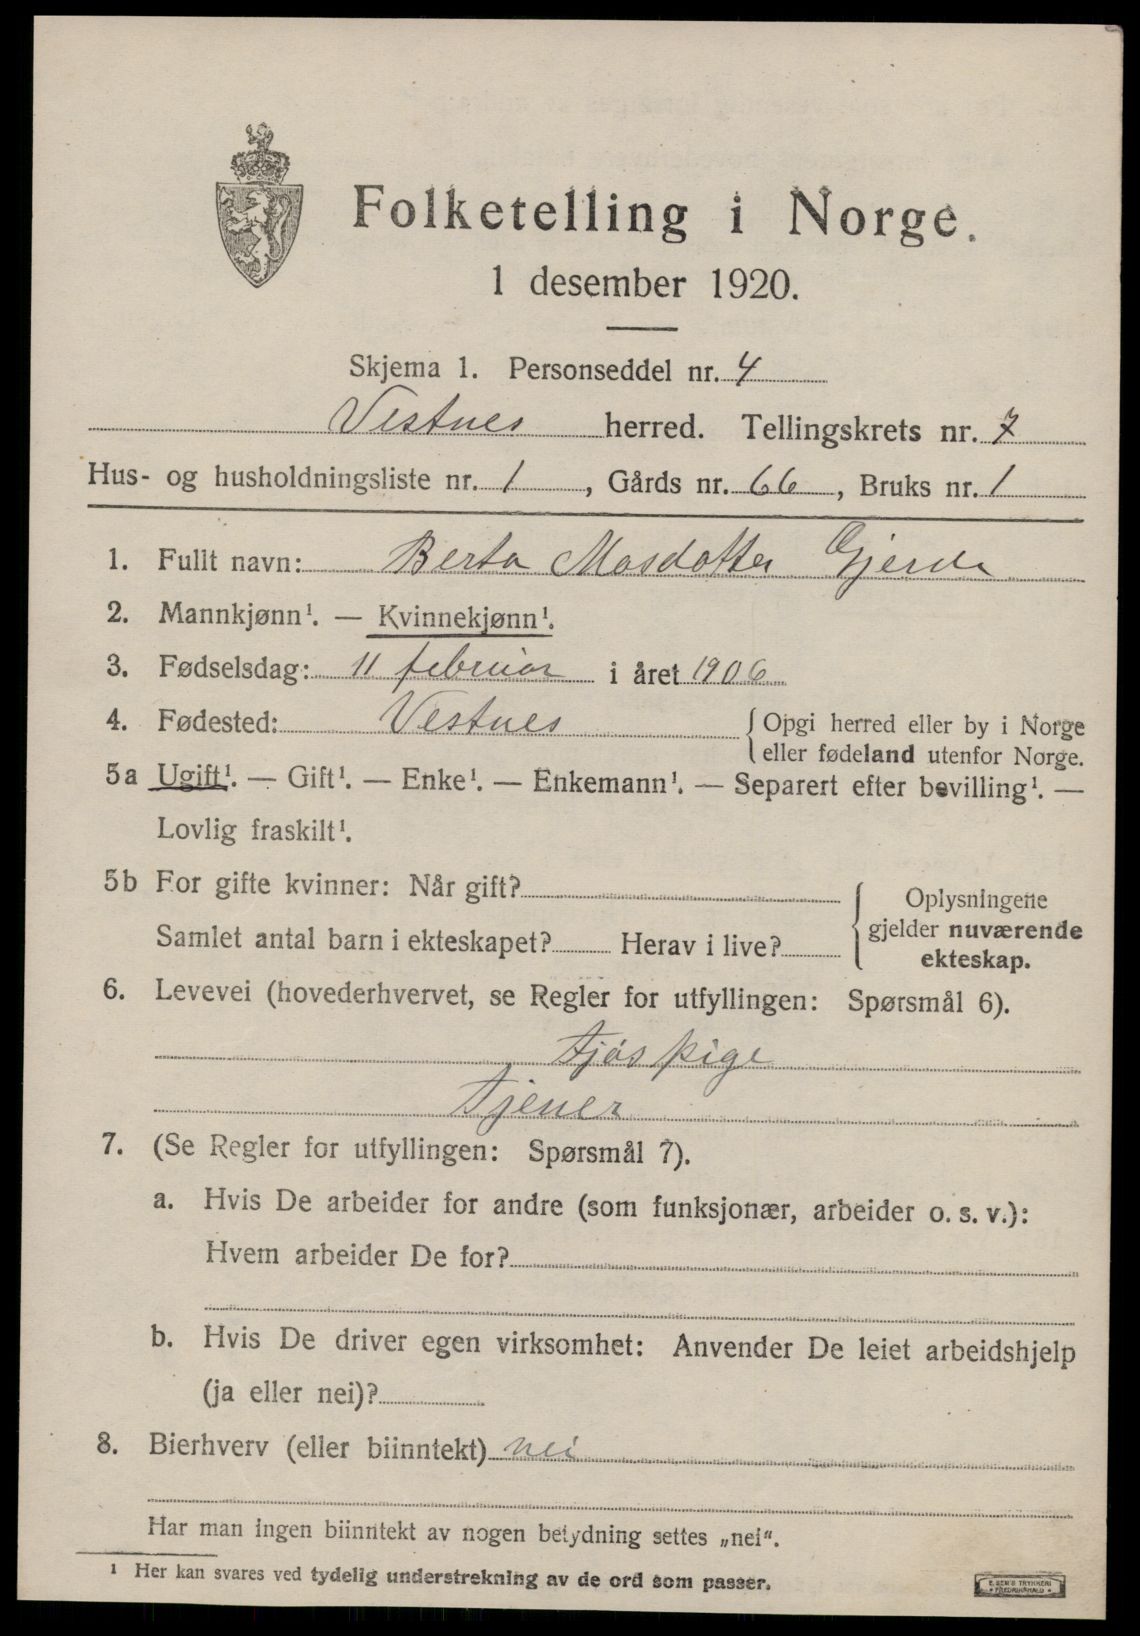 Folketelling i Norge.
1 desember 1920.
Skjema 1. Personseddel nr. 4
Vestnes herred. Tellingskrets nr. 7
Hus- og husholdningsliste nr. 1, Gårds nr. 66, Bruks nr. 1
1. Fullt navn: Berta Masdotter Gjerde
2. Mannkjønn¹. — Kvinnekjønn¹.
3. Fødselsdag: 11 februar i året 1906
4. Fødested: Vestnes {Opgi herred eller by i Norge
eller fødeland utenfor Norge.
5a Ugift¹. — Gift¹. — Enke¹. — Enkemann¹. — Separert efter bevilling¹. —
Lovlig fraskilt¹.
5b For gifte kvinner: Når gift?
Samlet antal barn i ekteskapet? Herav i live?
{Oplysningene
gjelder nuværende
ekteskap.
6. Levevei (hovederhvervet, se Regler for utfyllingen: Spørsmål 6).
Fjøs pige
Tjener
7. (Se Regler for utfyllingen: Spørsmål 7).
a. Hvis De arbeider for andre (som funksjonær, arbeider o. s. v.):
Hvem arbeider De for?
b. Hvis De driver egen virksomhet: Anvender De leiet arbeidshjelp
(ja eller nei)?
8. Bierhverv (eller biinntekt) nei
Har man ingen biinntekt av nogen betydning settes „nei“.
¹ Her kan svares ved tydelig understrekning av de ord som passer.
E. SEM'S TRYKKERI
FREDRIKSHALD